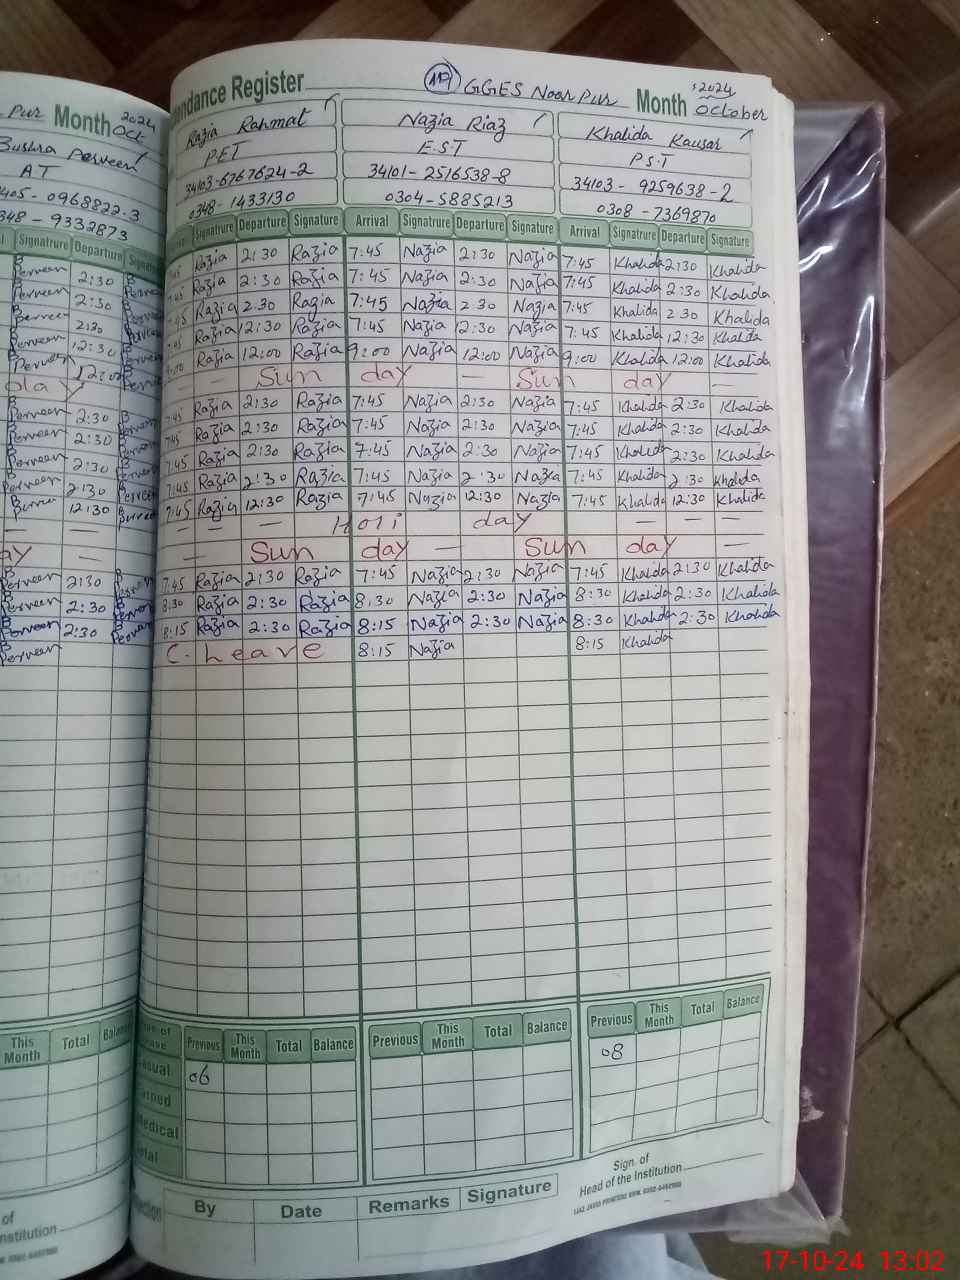 Pur Month 2024 Oct
Bushra Perveen
AT
405-0968822-3
348-9332873
Signature Departure Signature
Perveen 2:30
Perveen 2:30
Perveen 2:30
Perveen 12:30
Perveen 12:00
day
Perveen 2:30
Perveen 2:30
Perveen 2:30
Perveen 2:30
12:30
ay
Perveen 2:30
Perveen 2:30
Perveen 2:30
Perveen
This Month Total Balance
of
nstitution
ndance Register 117 GGES Noor Pur Month 2024 October
Razia Rahmat Nazia Riaz Khalida Kausar
PET E.S.T P.S.T
34103-6767624-2 34101-2516538-8 34103-9259638-2
0348-1433130 0304-5885213 0308-7369870
Signature Departure Signature Arrival Signature Departure Signature Arrival Signature Departure Signature
:45 Razia 2:30 Razia 7:45 Nazia 2:30 Nazia 7:45 Khalida 2:30 Khalida
:45 Razia 2:30 Razia 7:45 Nazia 2:30 Nazia 7:45 Khalida 2:30 Khalida
:45 Razia 2.30 Razia 7:45 Nazia 2.30 Nazia 7:45 Khalida 2.30 Khalida
:45 Razia 12:30 Razia 7:45 Nazia 12:30 Nazia 7:45 Khalida 12:30 Khalida
:00 Razia 12:00 Razia 9:00 Nazia 12:00 Nazia 9:00 Khalida 12:00 Khalida
— — Sun day — Sun day —
7:45 Razia 2:30 Razia 7:45 Nazia 2:30 Nazia 7:45 Khalida 2:30 Khalida
7:45 Razia 2:30 Razia 7:45 Nazia 2:30 Nazia 7:45 Khalida 2:30 Khalida
7:45 Razia 2:30 Razia 7:45 Nazia 2:30 Nazia 7:45 Khalida 2:30 Khalida
7:45 Razia 2:30 Razia 7:45 Nazia 2:30 Nazia 7:45 Khalida 2:30 Khalida
7:45 Razia 12:30 Razia 7:45 Nazia 12:30 Nazia 7:45 Khalida 12:30 Khalida
— — — Holi day — — —
— Sun day — Sun day —
7:45 Razia 2:30 Razia 7:45 Nazia 2:30 Nazia 7:45 Khalida 2:30 Khalida
8:30 Razia 2:30 Razia 8:30 Nazia 2:30 Nazia 8:30 Khalida 2:30 Khalida
8:15 Razia 2:30 Razia 8:15 Nazia 2:30 Nazia 8:30 Khalida 2:30 Khalida
C. Leave 8:15 Nazia 8:15 Khalida
Previous This Month Total Balance Previous This Month Total Balance Previous This Month Total Balance
asual 06 08
arned
Medical
otal
By Date Remarks Signature
Sign. of
Head of the Institution
17-10-24 13:02